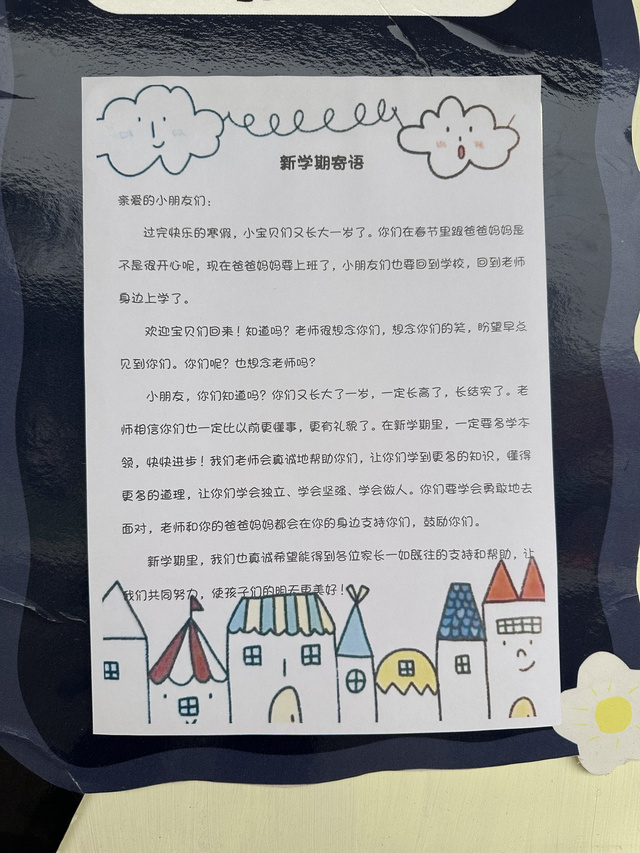 新学期寄语
亲爱的小朋友们：
过完快乐的寒假，小宝贝们又长大一岁了。你们在春节里跟爸爸妈妈是
不是很开心呢，现在爸爸妈妈要上班了，小朋友们也要回到学校，回到老师
身边上学了。
欢迎宝贝们回来！知道吗？老师很想念你们，想念你们的笑，盼望早点
见到你们。你们呢？也想念老师吗？
小朋友，你们知道吗？你们又长大了一岁，一定长高了，长结实了。老
师相信你们也一定比以前更懂事，更有礼貌了。在新学期里，一定要多学本
领，快快进步！我们老师会真诚地帮助你们，让你们学到更多的知识，懂得
更多的道理，让你们学会独立、学会坚强、学会做人。你们要学会勇敢地去
面对，老师和你的爸爸妈妈都会在你的身边支持你们，鼓励你们。
新学期里，我们也真诚希望能得到各位家长一如既往的支持和帮助，让
我们共同努力，使孩子们的明天更美好！